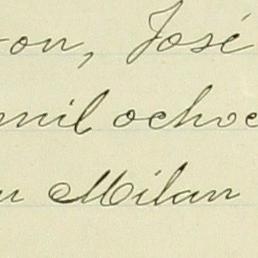 on, José
mil ochoc
n Milan